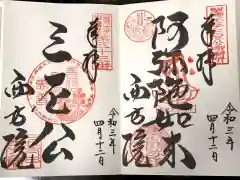 奉拝
令和三年
四月十二日
阿彌陀如来
西方院
奉拝
令和三年
四月十二日
三尼公
西方院